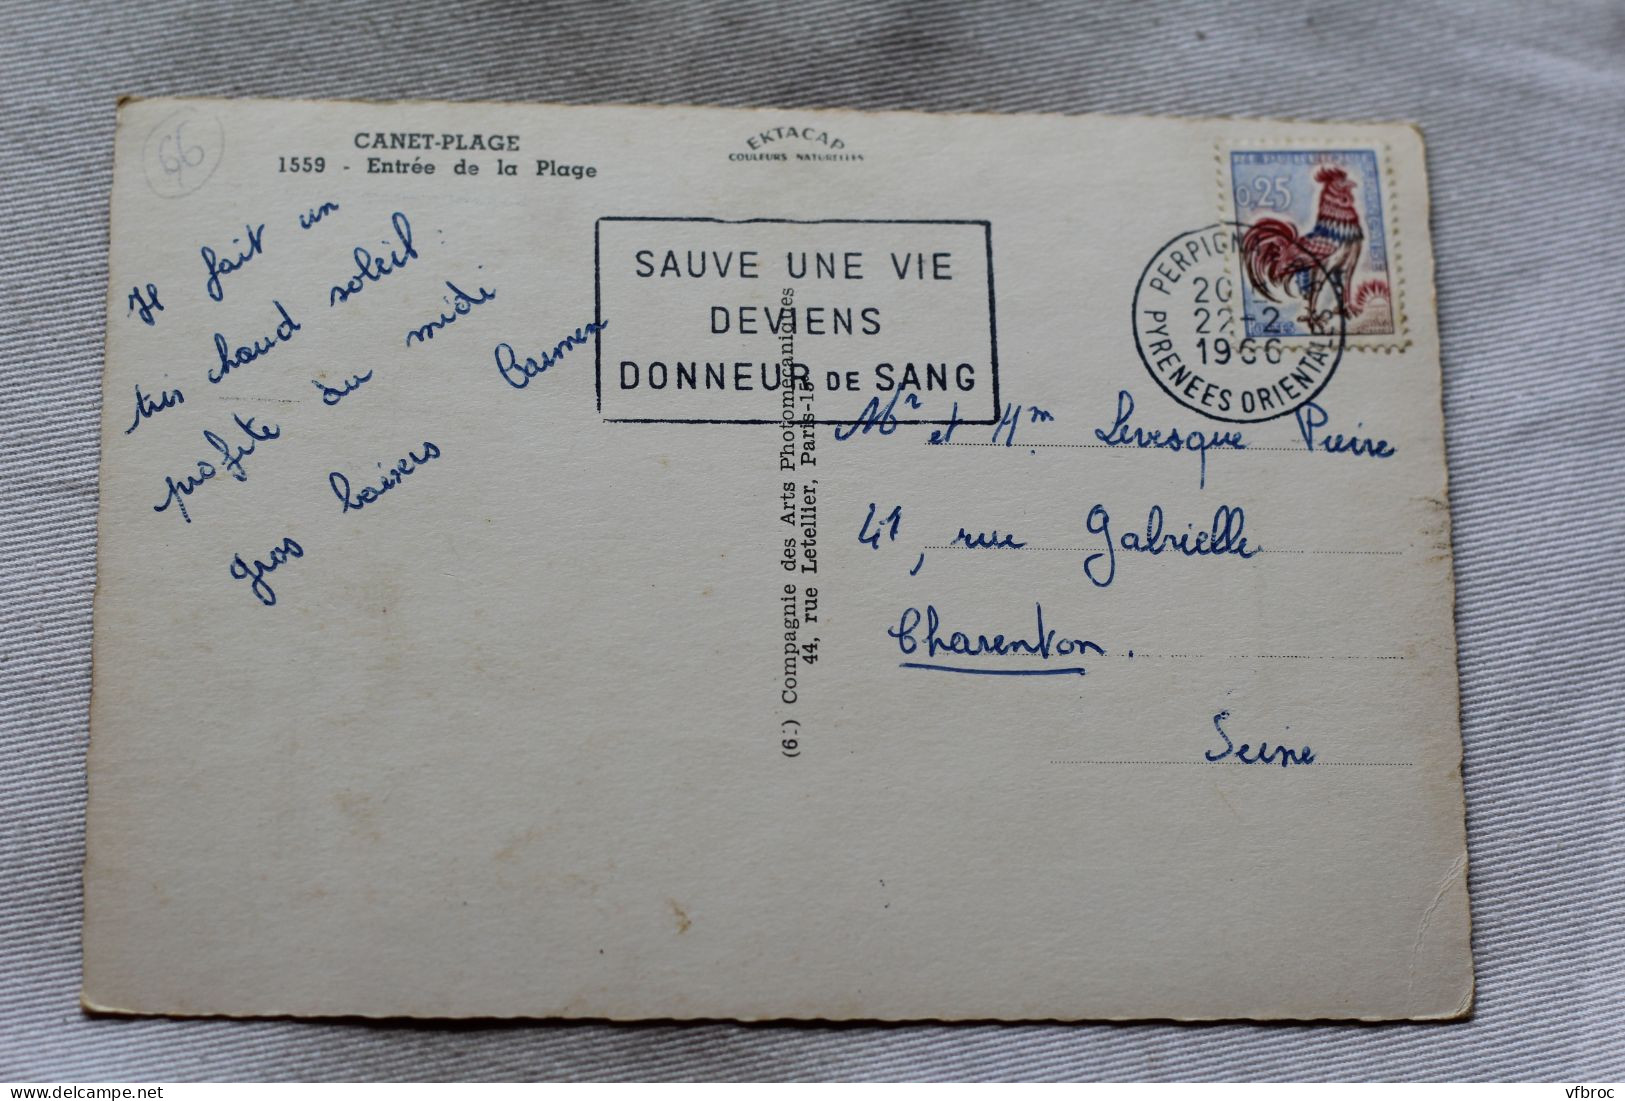 66
CANET-PLAGE
1559 - Entrée de la Plage
EKTACAP
COULEURS NATURELLES
Il fait un
très chaud soleil :
profite du midi
gros baisers Carmen
SAUVE UNE VIE
DEVIENS
DONNEUR DE SANG
0,25
PERPIGN
22-2
1966
PYRENEES ORIENTALES
(6:) Compagnie des Arts Photomécaniques
44, rue Letellier, Paris-15
Mr et Mm Levesque Pierre
41, rue Gabrielle
Charenton.
Seine
vfbroc